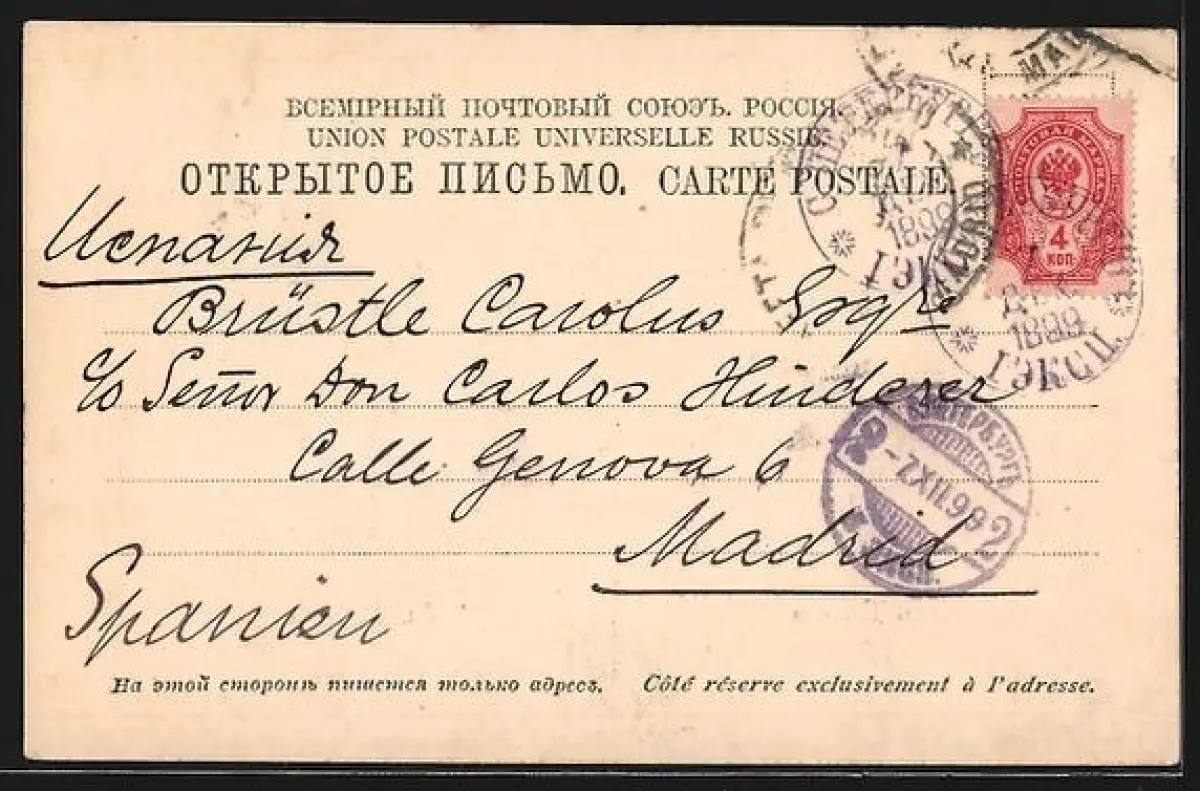 ВСЕМІРНЫЙ ПОЧТОВЫЙ СОЮЗЪ. РОССІЯ.
UNION POSTALE UNIVERSELLE RUSSIE.
ОТКРЫТОЕ ПИСЬМО. CARTE POSTALE.
ПОЧТОВАЯ МАРКА
4
КОП.
Испанія
Brüstle Carolus Esqre
c/o Señor Don Carlos Hinderer
Calle Genova 6
Madrid
Spanien
С.ПЕТЕРБУРГЪ
1899
1 ЭКСП.
1899
1 ЭКСП.
2 -2.XII.99 2
На этой сторонѣ пишется только адресъ. Côté réservé exclusivement à l'adresse.